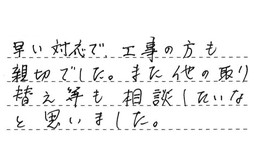 早い対応で、工事の方も
親切でした。また他の取り
替え等も相談したいな
と思いました。